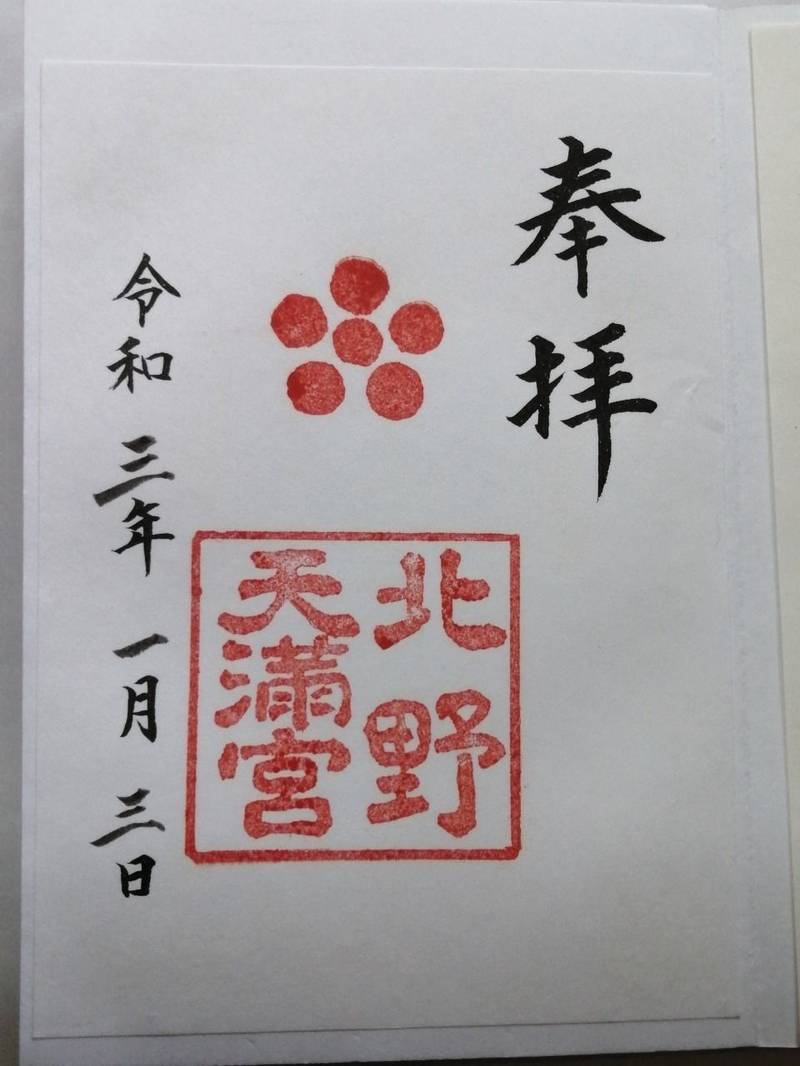 奉拝
北野
天満宮
令和三年一月三日